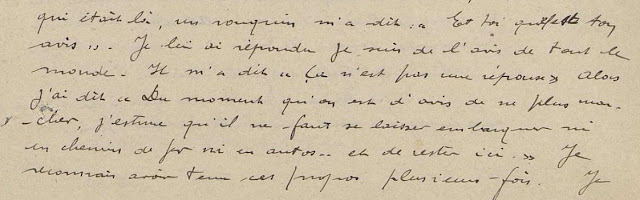 qui était là, un rouquin m'a dit : « Et toi quel est ton
avis ». Je lui ai répondu Je suis de l'avis de tout le
monde. Il m'a dit « Ce n'est pas une réponse » Alors
j'ai dit « Du moment qu'on est d'avis de ne plus mar-
-cher, j'estime qu'il ne faut se laisser embarquer ni
en chemins de fer ni en autos.. et de rester ici. » Je
reconnais avoir tenu ces propos plusieurs fois. Je